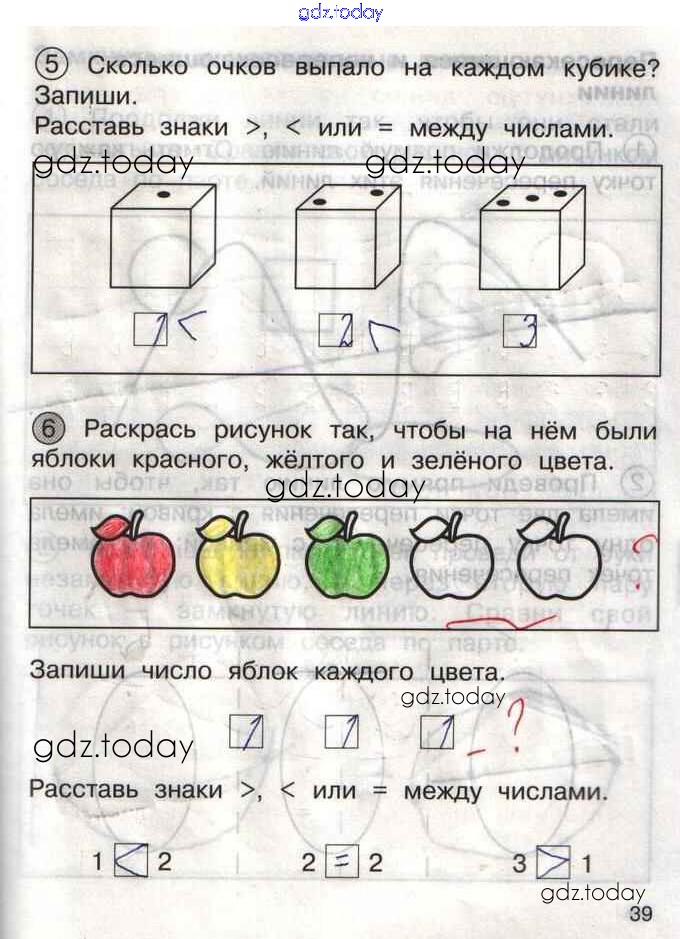 gdz.today
5 Сколько очков выпало на каждом кубике?
Запиши.
Расставь знаки >, < или = между числами.
gdz.today gdz.today
1 < 2 < 3
6 Раскрась рисунок так, чтобы на нём были
яблоки красного, жёлтого и зелёного цвета.
gdz.today
?
Запиши число яблок каждого цвета.
gdz.today
1 1 1 - ?
gdz.today
Расставь знаки >, < или = между числами.
1 < 2 2 = 2 3 > 1
gdz.today
39